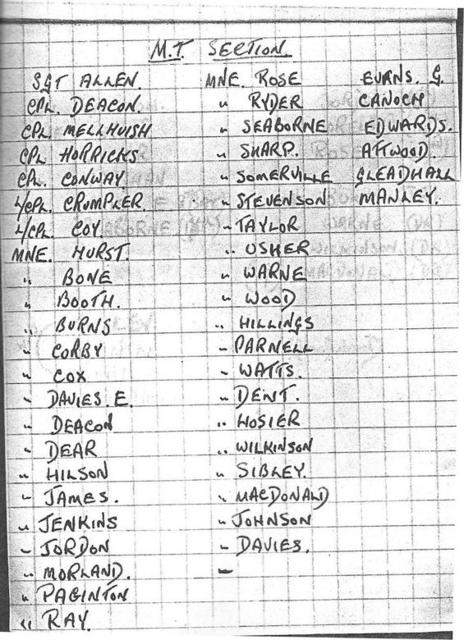 M.T. SECTION
SGT ALLEN.
CPL. DEACON.
CPL MELLHUISH
CPL HORRICKS
CPL. CONWAY.
L/CPL. CRUMPLER
L/CPL. COY.
MNE. HURST.
" BONE
" BOOTH.
" BURNS
" CORBY
" COX
" DAVIES. E.
" DEACON
" DEAR
" HILSON
" JAMES.
" JENKINS
" JORDON
" MORLAND.
" PAGINTON
" RAY.
MNE. ROSE
" RYDER
" SEABORNE
" SHARP.
" SOMERVILLE
" STEVENSON
" TAYLOR
" USHER
" WARNE
" WOOD
" HILLINGS
" PARNELL
" WATTS.
" DENT.
" HOSIER
" WILKINSON
" SIBLEY.
" MACDONALD
" JOHNSON
" DAVIES.
"
BURNS. G.
CANOCH
EDWARDS.
ATTWOOD.
GLEADHALL
MANLEY.